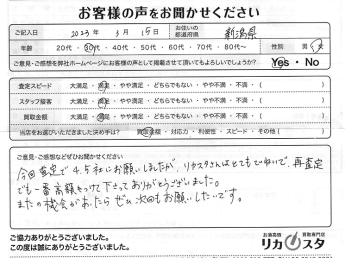 お客様の声をお聞かせください
ご記入日 2023年 3月 15日 お住いの都道府県 新潟県
年齢 20代・30代・40代・50代・60代・70代・80代～ 性別 男・女
ご意見・ご感想を弊社ホームページにお客様の声として掲載させて頂いてもよろしいでしょうか? Yes・No
査定スピード 大満足・満足・やや満足・どちらでもない・やや不満・不満・( )
スタッフ接客 大満足・満足・やや満足・どちらでもない・やや不満・不満・( )
買取金額 大満足・満足・やや満足・どちらでもない・やや不満・不満・( )
当店をお選びいただきました決め手は? 買取金額・対応力・利便性・スピード・その他( )
ご意見・ご感想などぜひお聞かせください
今回査定で4.5社にお願いしましたが、リカスタさんはとてもていねいで、再査定
でも一番高額をつけて下さってありがとうございました。
またの機会があったらぜひ次回もお願いしたいです。
ご協力ありがとうございました。
この度は誠にありがとうございました。
お酒高価買取専門店
リカスタ